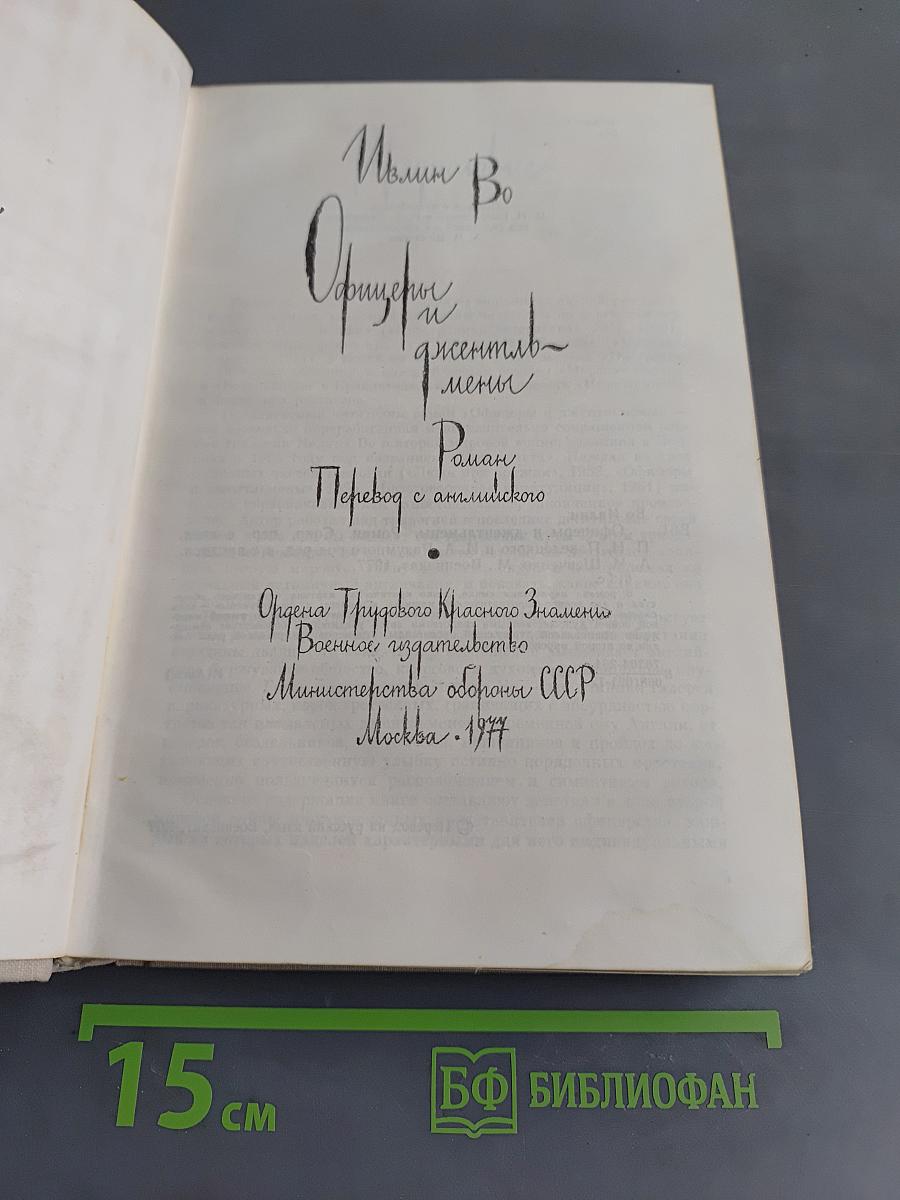 Ивлин Во
Офицеры
и
джентль~
мены
Роман
Перевод с английского
Ордена Трудового Красного Знамени
Военное издательство
Министерства обороны СССР
Москва · 1977
15 см
БФ БИБЛИОФАН